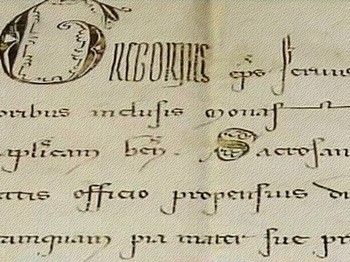 GREGORIUS eps servus
oribus inclusis Monas
aplicam ben. Sacrosan
atis officio propensius di
tamquam pia mater sue pr